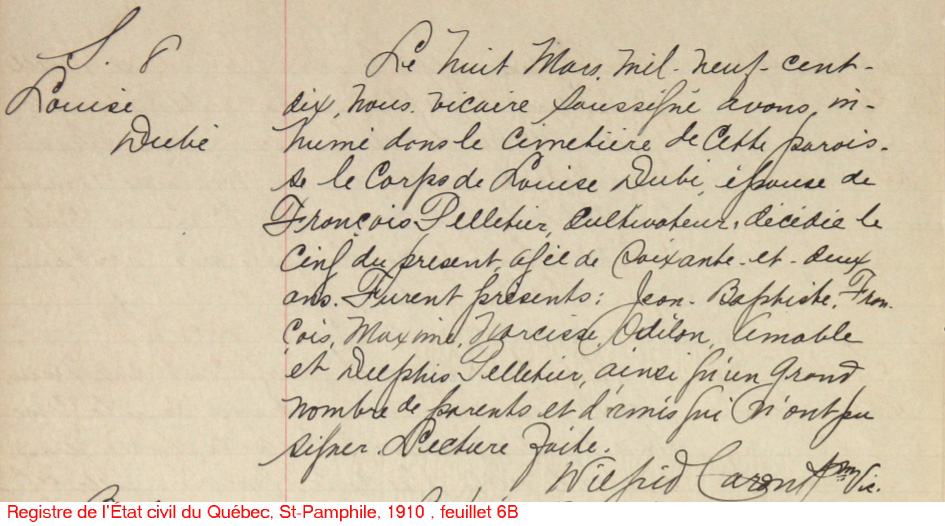 S. 8
Louise
Dubé
Le huit Mars, mil-neuf-cent-
dix, nous vicaire soussigné avons, in-
humé dans le cimetière de cette parois-
se le corps de Louise Dubé, épouse de
François Pelletier, cultivateur, décédée le
cinq du présent, agée de soixante-et-deux
ans. Furent présents: Jean-Baptiste, Fran-
çois, Maxime, Narcisse, Odilon, Aimable
et Delphis Pelletier, ainsi qu'un grand
nombre de parents et d'amis qui n'ont pu
signer. Lecture faite.
Wilfrid Caron Ptre Vic.
Registre de l'État civil du Québec, St-Pamphile, 1910 , feuillet 6B